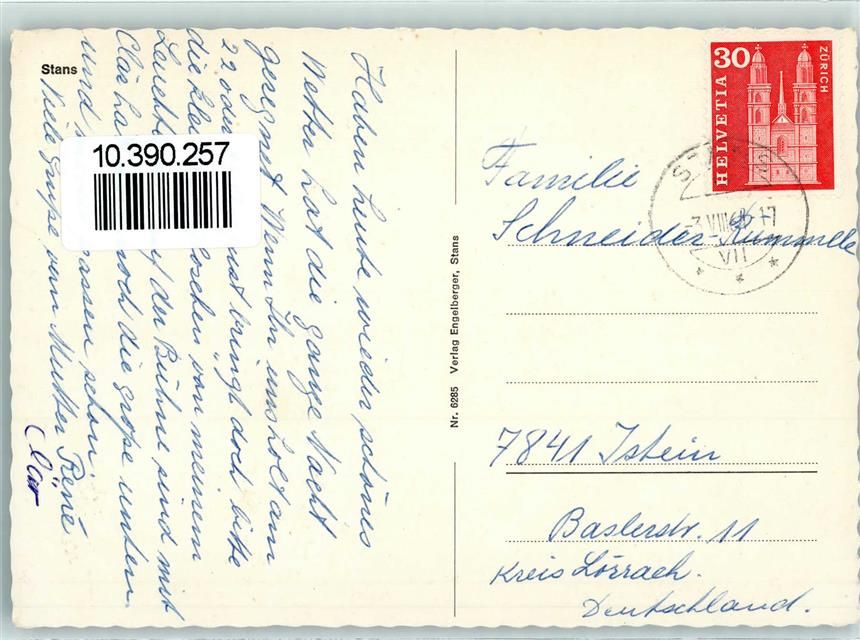 Stans
Haben heute wieder schönes
Wetter hat die ganze Nacht
geregnet. Wenn Ihr uns holt am
22 oder bringt doch bitte
die von meinem
auf der Bühne sind mit
noch die große unten
und schon.
Viele Grüße von Mutter René
Clär
10.390.257
Nr. 6285 Verlag Engelberger, Stans
30
HELVETIA
ZÜRICH
VIII
-17
VII
Familie
Schneider-Kummele
7841 Istein
Baslerstr. 11
Kreis Lörrach.
Deutschland.